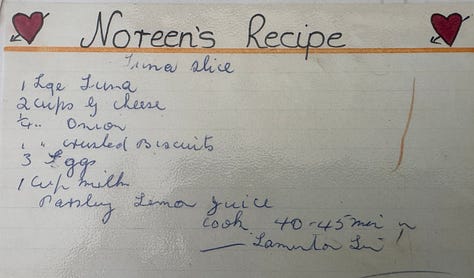 Noreen's Recipe
Tuna slice
1 Lge Tuna
2 cups G cheese
¼ " Onion
1 " crushed Biscuits
3 Eggs
1 Cup milk
Parsley Lemon Juice
Cook 40-45 min